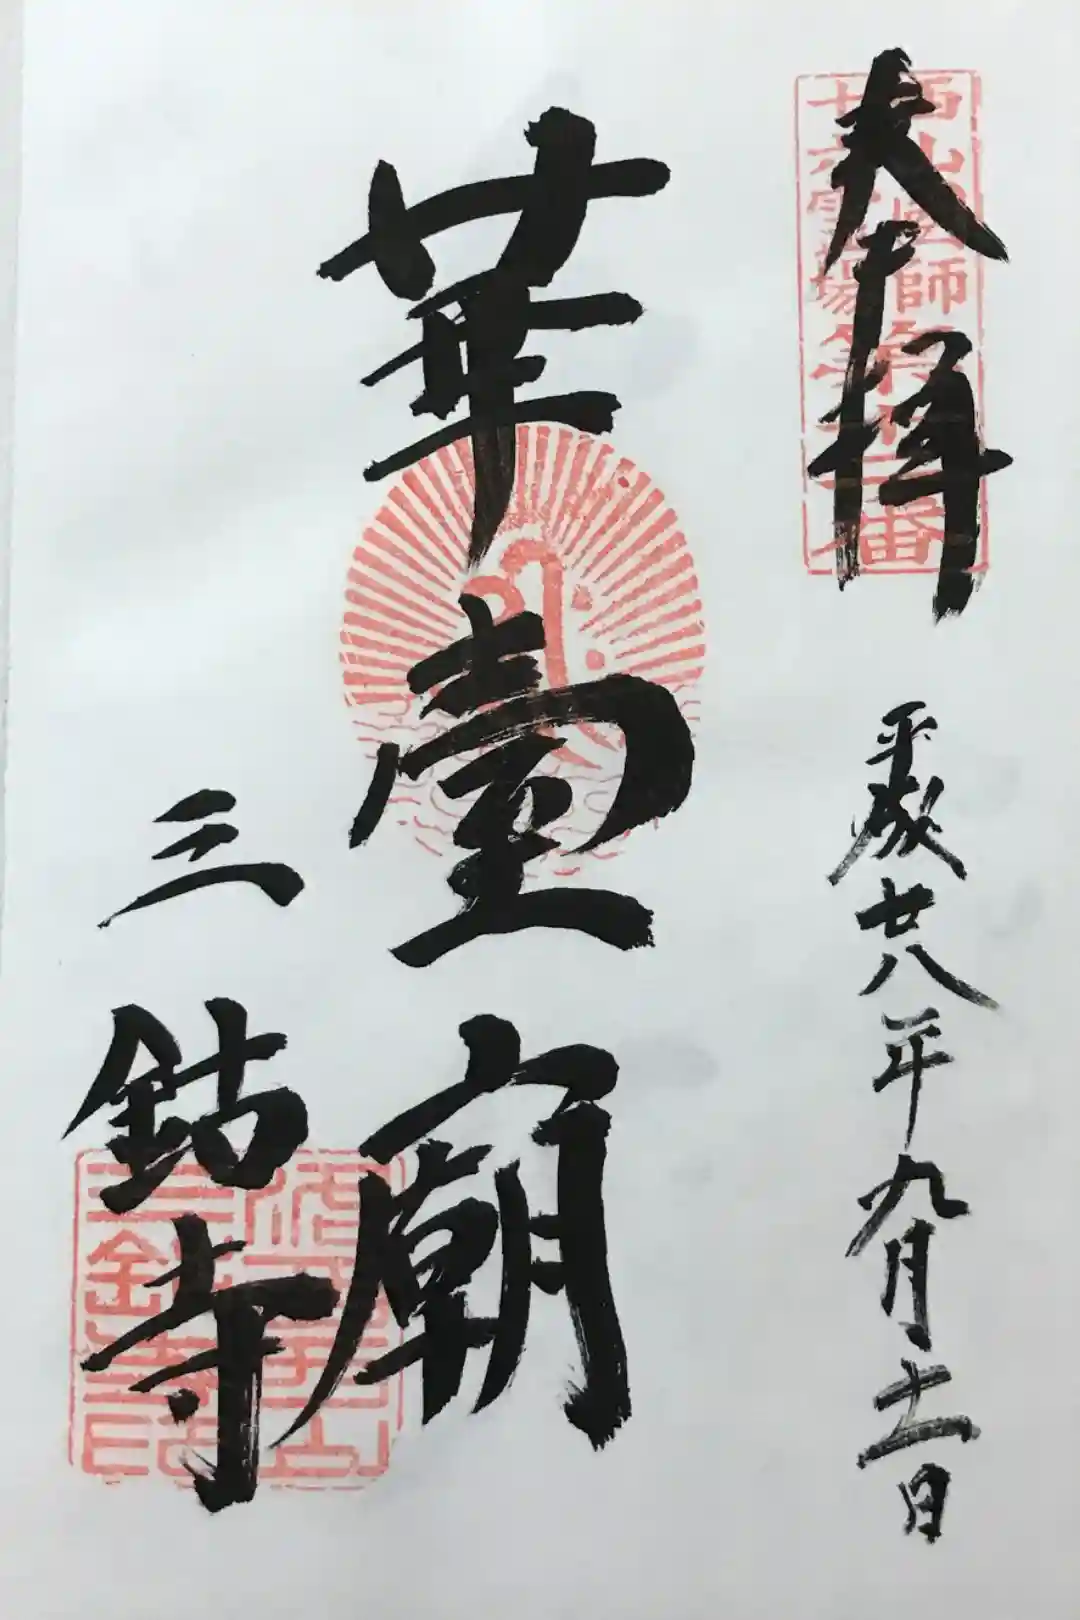 奉拝
西山国師
十六霊場第十三番
平成廿八年九月十一日
華臺廟
三鈷寺